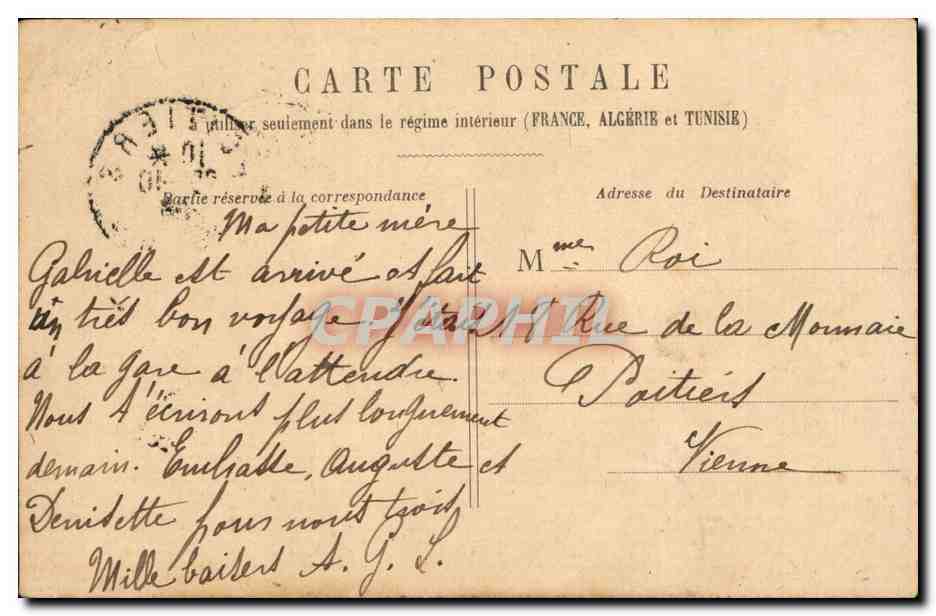 CARTE POSTALE
à utiliser seulement dans le régime intérieur (FRANCE, ALGÉRIE et TUNISIE)
POITIERS
Partie réservée à la correspondance
Ma petite mére
Gabrielle est arrivé et fait
un très bon voyage. J'étais
à la gare à l'attendre.
Nous t'écrirons plus longuement
demain. Embrasse, Auguste et
Denisette pour nous trois
Mille baisers A. G. L.
Adresse du Destinataire
Mme Roi
Rue de la Monnaie
Poitiers
Vienne
CPAPHIL